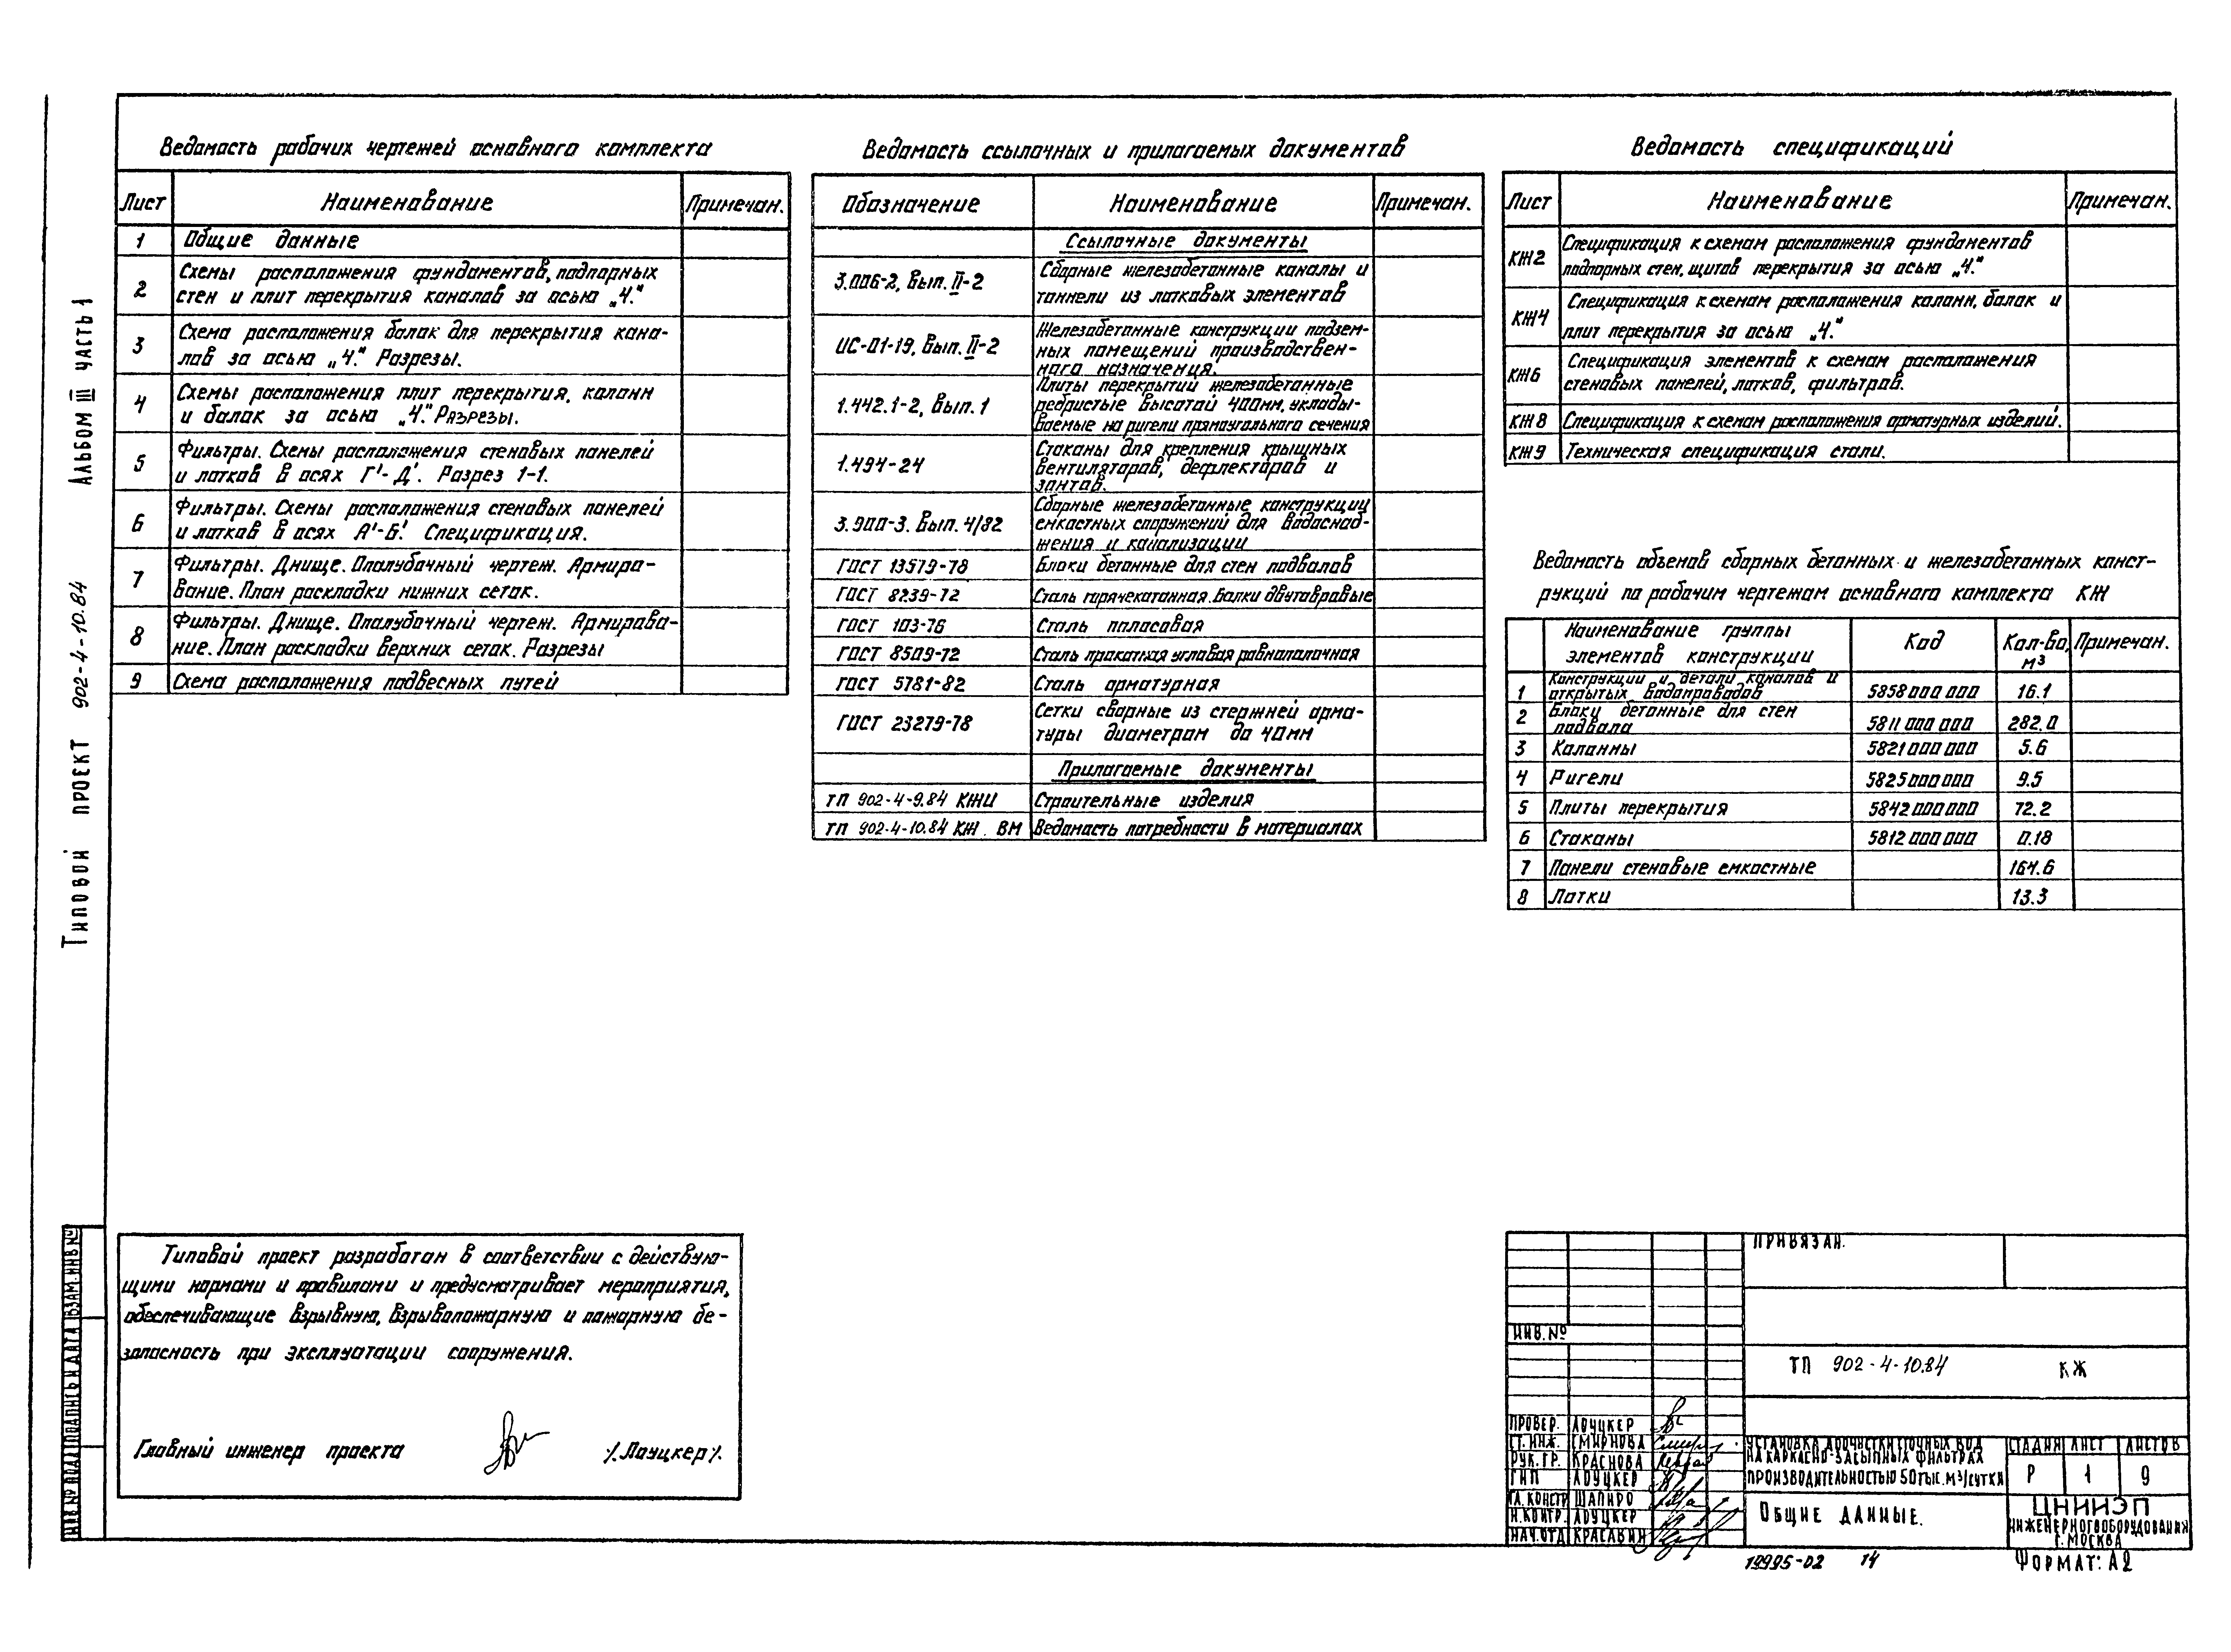 Ведомость рабочих чертежей основного комплекта
Лист Наименование Примечан.
1 Общие данные
2 Схемы расположения фундаментов, подпорных
стен и плит перекрытия каналов за осью „Ч."
3 Схема расположения балок для перекрытия кана-
лов за осью „Ч." Разрезы.
4 Схемы расположения плит перекрытия, колонн
и балок за осью „Ч." Разрезы.
5 Фильтры. Схемы расположения стеновых панелей
и лотков в осях Г'-Д'. Разрез 1-1.
6 Фильтры. Схемы расположения стеновых панелей
и лотков в осях А'-Б'. Спецификация.
7 Фильтры. Днище. Опалубочный чертеж. Армиро-
вание. План раскладки нижних сеток.
8 Фильтры. Днище. Опалубочный чертеж. Армирова-
ние. План раскладки верхних сеток. Разрезы
9 Схема расположения подвесных путей
Ведомость ссылочных и прилагаемых документов
Обозначение Наименование Примечан.
Ссылочные документы
3.006-2, Вып. II-2 Сборные железобетонные каналы и
тоннели из лотковых элементов
ИС-01-19, Вып. II-2 Железобетонные конструкции подзем-
ных помещений производствен-
ного назначения.
1.442.1-2, Вып. 1 Плиты перекрытий железобетонные
ребристые высотой 400мм, уклады-
ваемые на ригели прямоугольного сечения
1.494-24 Стаканы для крепления крышных
вентиляторов, дефлекторов и
зонтов.
3.900-3. Вып. 4/82 Сборные железобетонные конструкции
емкостных сооружений для водоснаб-
жения и канализации
ГОСТ 13579-78 Блоки бетонные для стен подвалов
ГОСТ 8239-72 Сталь горячекатанная. Балки двутавровые
ГОСТ 103-76 Сталь полосовая
ГОСТ 8509-72 Сталь прокатная угловая равнополочная
ГОСТ 5781-82 Сталь арматурная
ГОСТ 23279-78 Сетки сварные из стержней арма-
туры диаметром до 40мм
Прилагаемые документы
ТП 902-4-9.84 КЖИ Строительные изделия
ТП 902-4-10.84 КЖ. ВМ Ведомость потребности в материалах
Ведомость спецификаций
Лист Наименование Примечан.
КЖ2 Спецификация к схемам расположения фундаментов
подпорных стен, щитов перекрытия за осью „Ч."
КЖ4 Спецификация к схемам расположения колонн, балок и
плит перекрытия за осью „Ч."
КЖ6 Спецификация элементов к схемам расположения
стеновых панелей, лотков, фильтров.
КЖ8 Спецификация к схемам расположения арматурных изделий.
КЖ9 Техническая спецификация стали.
Ведомость объемов сборных бетонных и железобетонных конст-
рукций по рабочим чертежам основного комплекта КЖ
Наименование группы элементов конструкции Код Кол-во, м³ Примечан.
1 Конструкции и детали каналов и
открытых водопроводов 5858 000 000 16.1
2 Блоки бетонные для стен
подвала 5811 000 000 282.0
3 Колонны 5821 000 000 5.6
4 Ригели 5825 000 000 9.5
5 Плиты перекрытия 5842 000 000 72.2
6 Стаканы 5812 000 000 0.18
7 Панели стеновые емкостные 164.6
8 Лотки 13.3
Типовой проект 902-4-10.84 Альбом III часть 1
Типовой проект разработан в соответствии с действую-
щими нормами и правилами и предусматривает мероприятия,
обеспечивающие взрывную, взрывопожарную и пожарную бе-
зопасность при эксплуатации сооружения.
Главный инженер проекта /Лоуцкер/.
Инв. № подл. Подпись и дата Взам. инв №
Привязан.
Инв. №
ТП 902-4-10.84 КЖ
Провер. Лоуцкер
Ст. инж. Смирнова
Рук. гр. Краснова
ГИП Лоуцкер
Гл. констр Шапиро
Н. контр. Лоуцкер
Нач. отд Красавин
Установка доочистки сточных вод
на каркасно-засыпных фильтрах
производительностью 50 тыс. м³/сутки
Стадия Лист Листов
Р 1 9
Общие данные.
ЦНИИЭП
инженерного оборудования
г. Москва
19995-02 14
Формат: А2